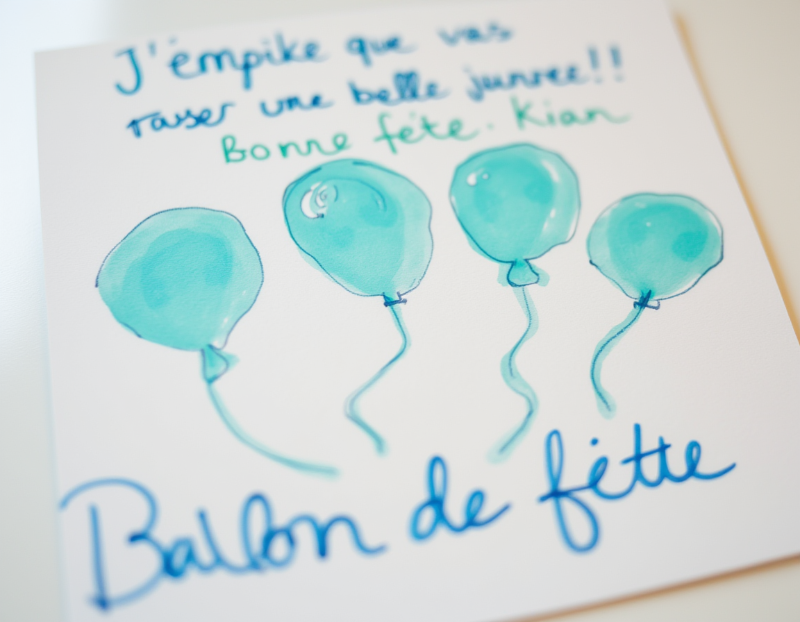 J'émpike que vas
raser une belle junree!!
Bonne féte. Kian
Ballon de fétte